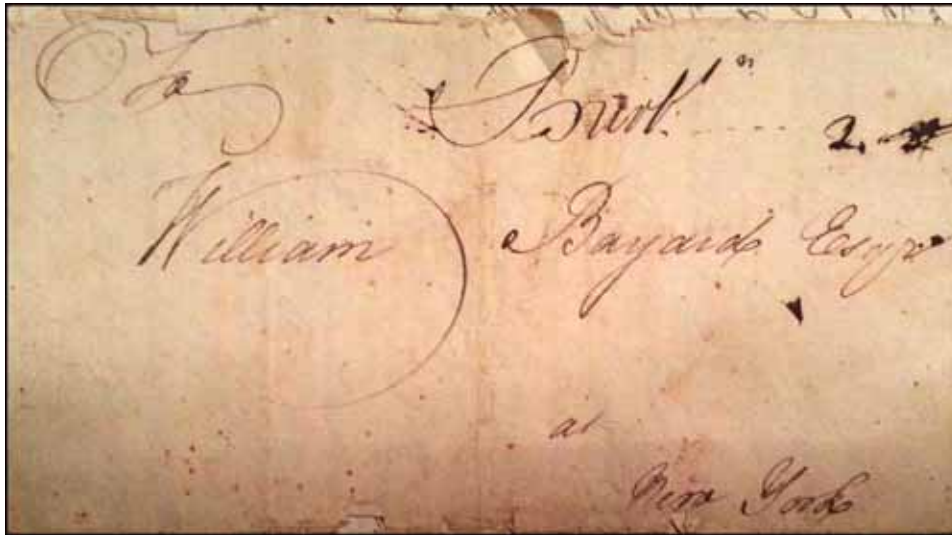 To Burln 2.
William Bayard Esqr
at
New York